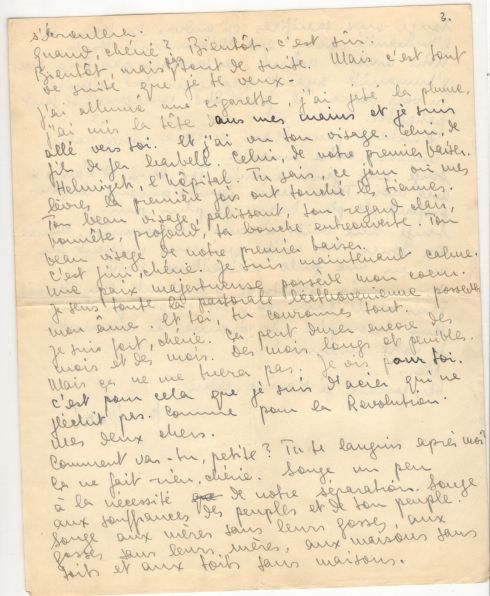 3.
s'écroulera.
Quand, chérie? Bientôt, c'est sûr.
Bientôt, mais pas tout de suite. Mais c'est tout
de suite que je te veux.
J'ai allumé une cigarette, j'ai jeté la plume,
j'ai mis la tête dans mes mains et je suis
allé vers toi. Et j'ai vu ton visage. Celui, de
fils de fer barbelé. Celui, de notre premier baiser.
Helmiyeh, l'hôpital. Tu sais, ce jour où mes
lèvres la première fois ont touché les tiennes.
Ton beau visage, pâlissant, ton regard clair,
honnête, profond, ta bouche entreouverte. Ton
beau visage de notre premier baiser.
C'est fini, chérie. Je suis maintenant calme.
Une paix majestueuse possède mon coeur.
Je sens toute la pastorale beethovenienne posséder
mon âme. Et toi, tu couronnes tout.
Je suis fort, chérie. Ça peut durer encore des
mois et des mois. Des mois longs et penibles.
Mais ça ne me tuera pas. Je vis pour toi.
C'est pour cela que je suis d'acier qui ne
fléchit pas. Comme pour la Revolution.
Mes deux chers.
Comment vas-tu, petite? Tu te languis après moi?
Ça ne fait rien, chérie. Songe un peu
à la nécessité de notre séparation. Songe
aux souffrances des peuples et de ton peuple.
Songe aux mères sans leurs gosses, aux
gosses sans leurs mères, aux maisons sans
toits et aux toits sans maisons.